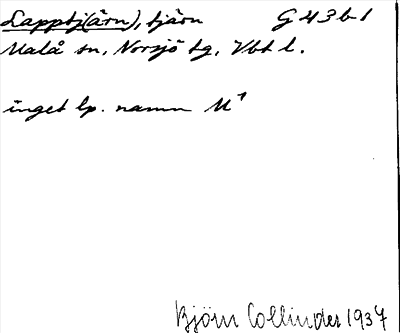 Lapptj(ärn), tjärn G 43 b 1
Malå sn, Norsjö tg, Vbt l.
inget lp. namn M¹
Björn Collinder 1937